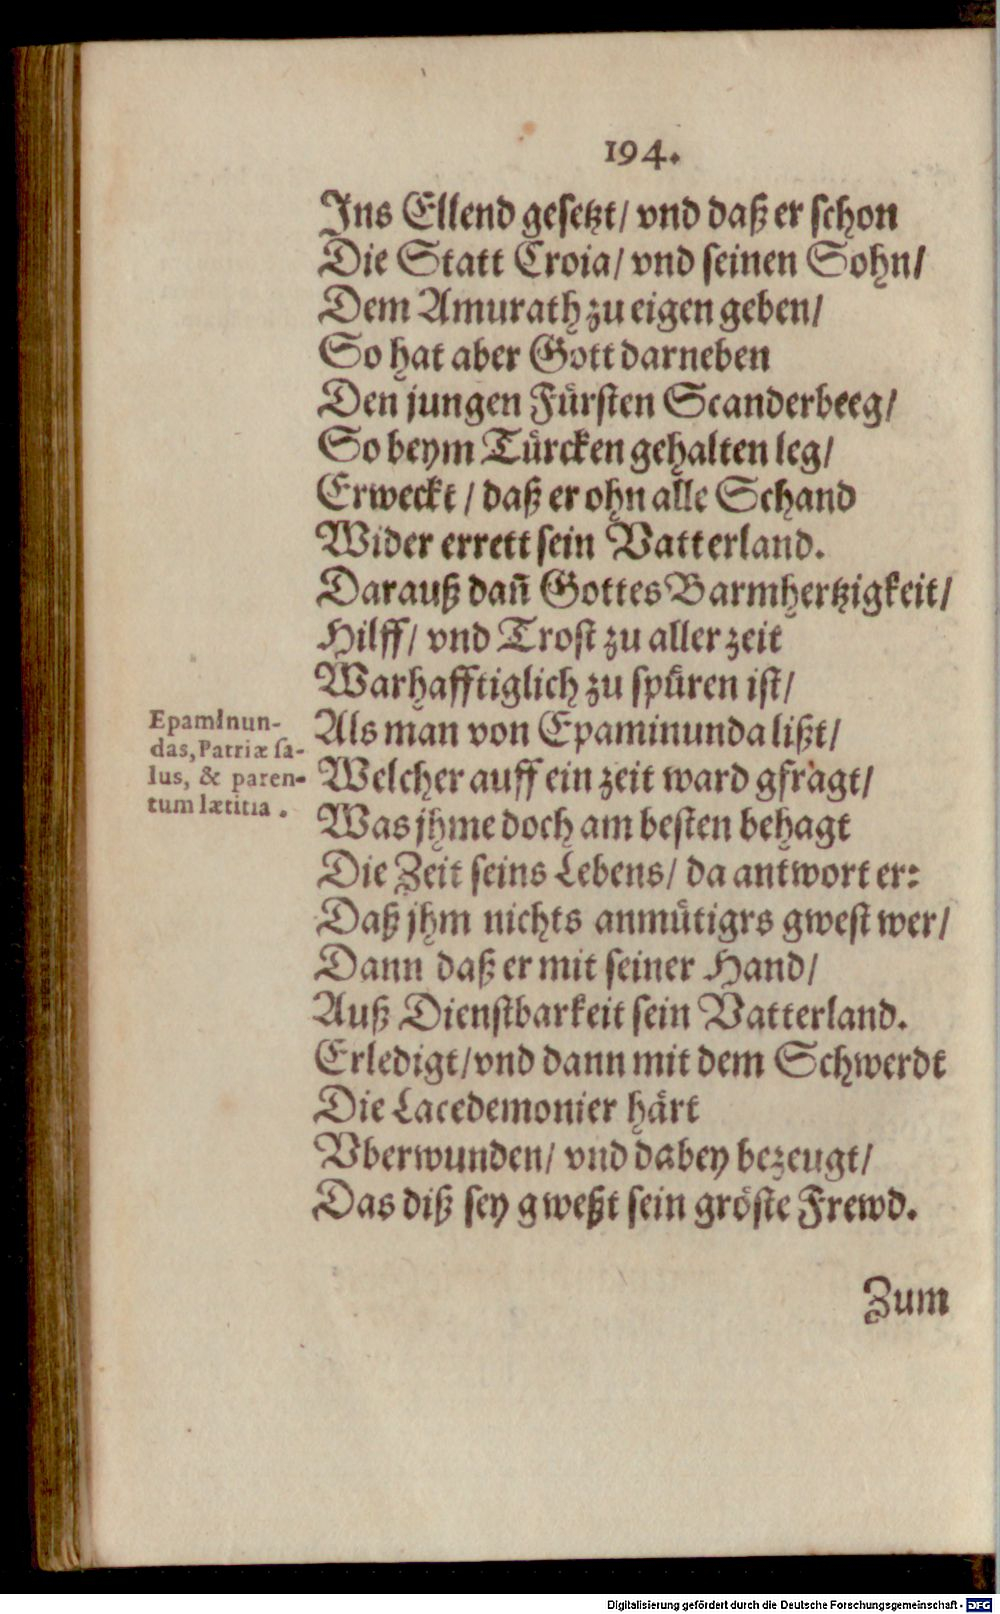 194.
Ins Ellend gesetzt/ vnd daß er schon
Die Statt Croia/ vnd seinen Sohn/
Dem Amurath zu eigen geben/
So hat aber Gott darneben
Den jungen Fürsten Scanderbeeg/
So beym Türcken gehalten leg/
Erweckt / daß er ohn alle Schand
Wider errett sein Vatterland.
Darauß dañ Gottes Barmhertzigkeit/
Hilff/ vnd Trost zu aller zeit
Warhafftiglich zu spüren ist/
Epaminun-
das, Patriæ ſa-
lus, & paren-
tum lætitia .
Als man von Epaminunda lißt/
Welcher auff ein zeit ward gfragt/
Was jhme doch am besten behagt
Die Zeit seins Lebens/ da antwort er:
Daß jhm nichts anmütigrs gwest wer/
Dann daß er mit seiner Hand/
Auß Dienstbarkeit sein Vatterland.
Erledigt/ vnd dann mit dem Schwerdt
Die Lacedemonier härt
Vberwunden/ vnd dabey bezeugt/
Das diß sey gweßt sein gröste Frewd.
Zum
Digitalisierung gefördert durch die Deutsche Forschungsgemeinschaft - DFG